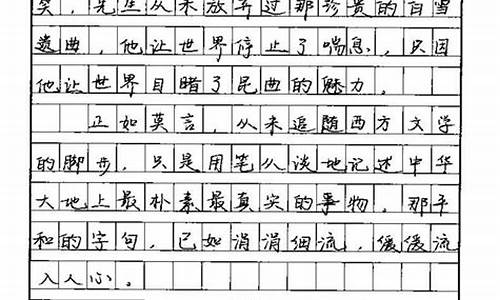 笑，先生从未放弃过那珍贵的白雪
遗曲，他让世界停止了喘息，只因
他让世界目睹了昆曲的魅力。
正如莫言，从未追随西方文学
的脚步，只是用笔从谈地记述中华
大地上最朴素最真实的事物。那平
和的字句，已如涓涓细流，缓缓流
入人心。